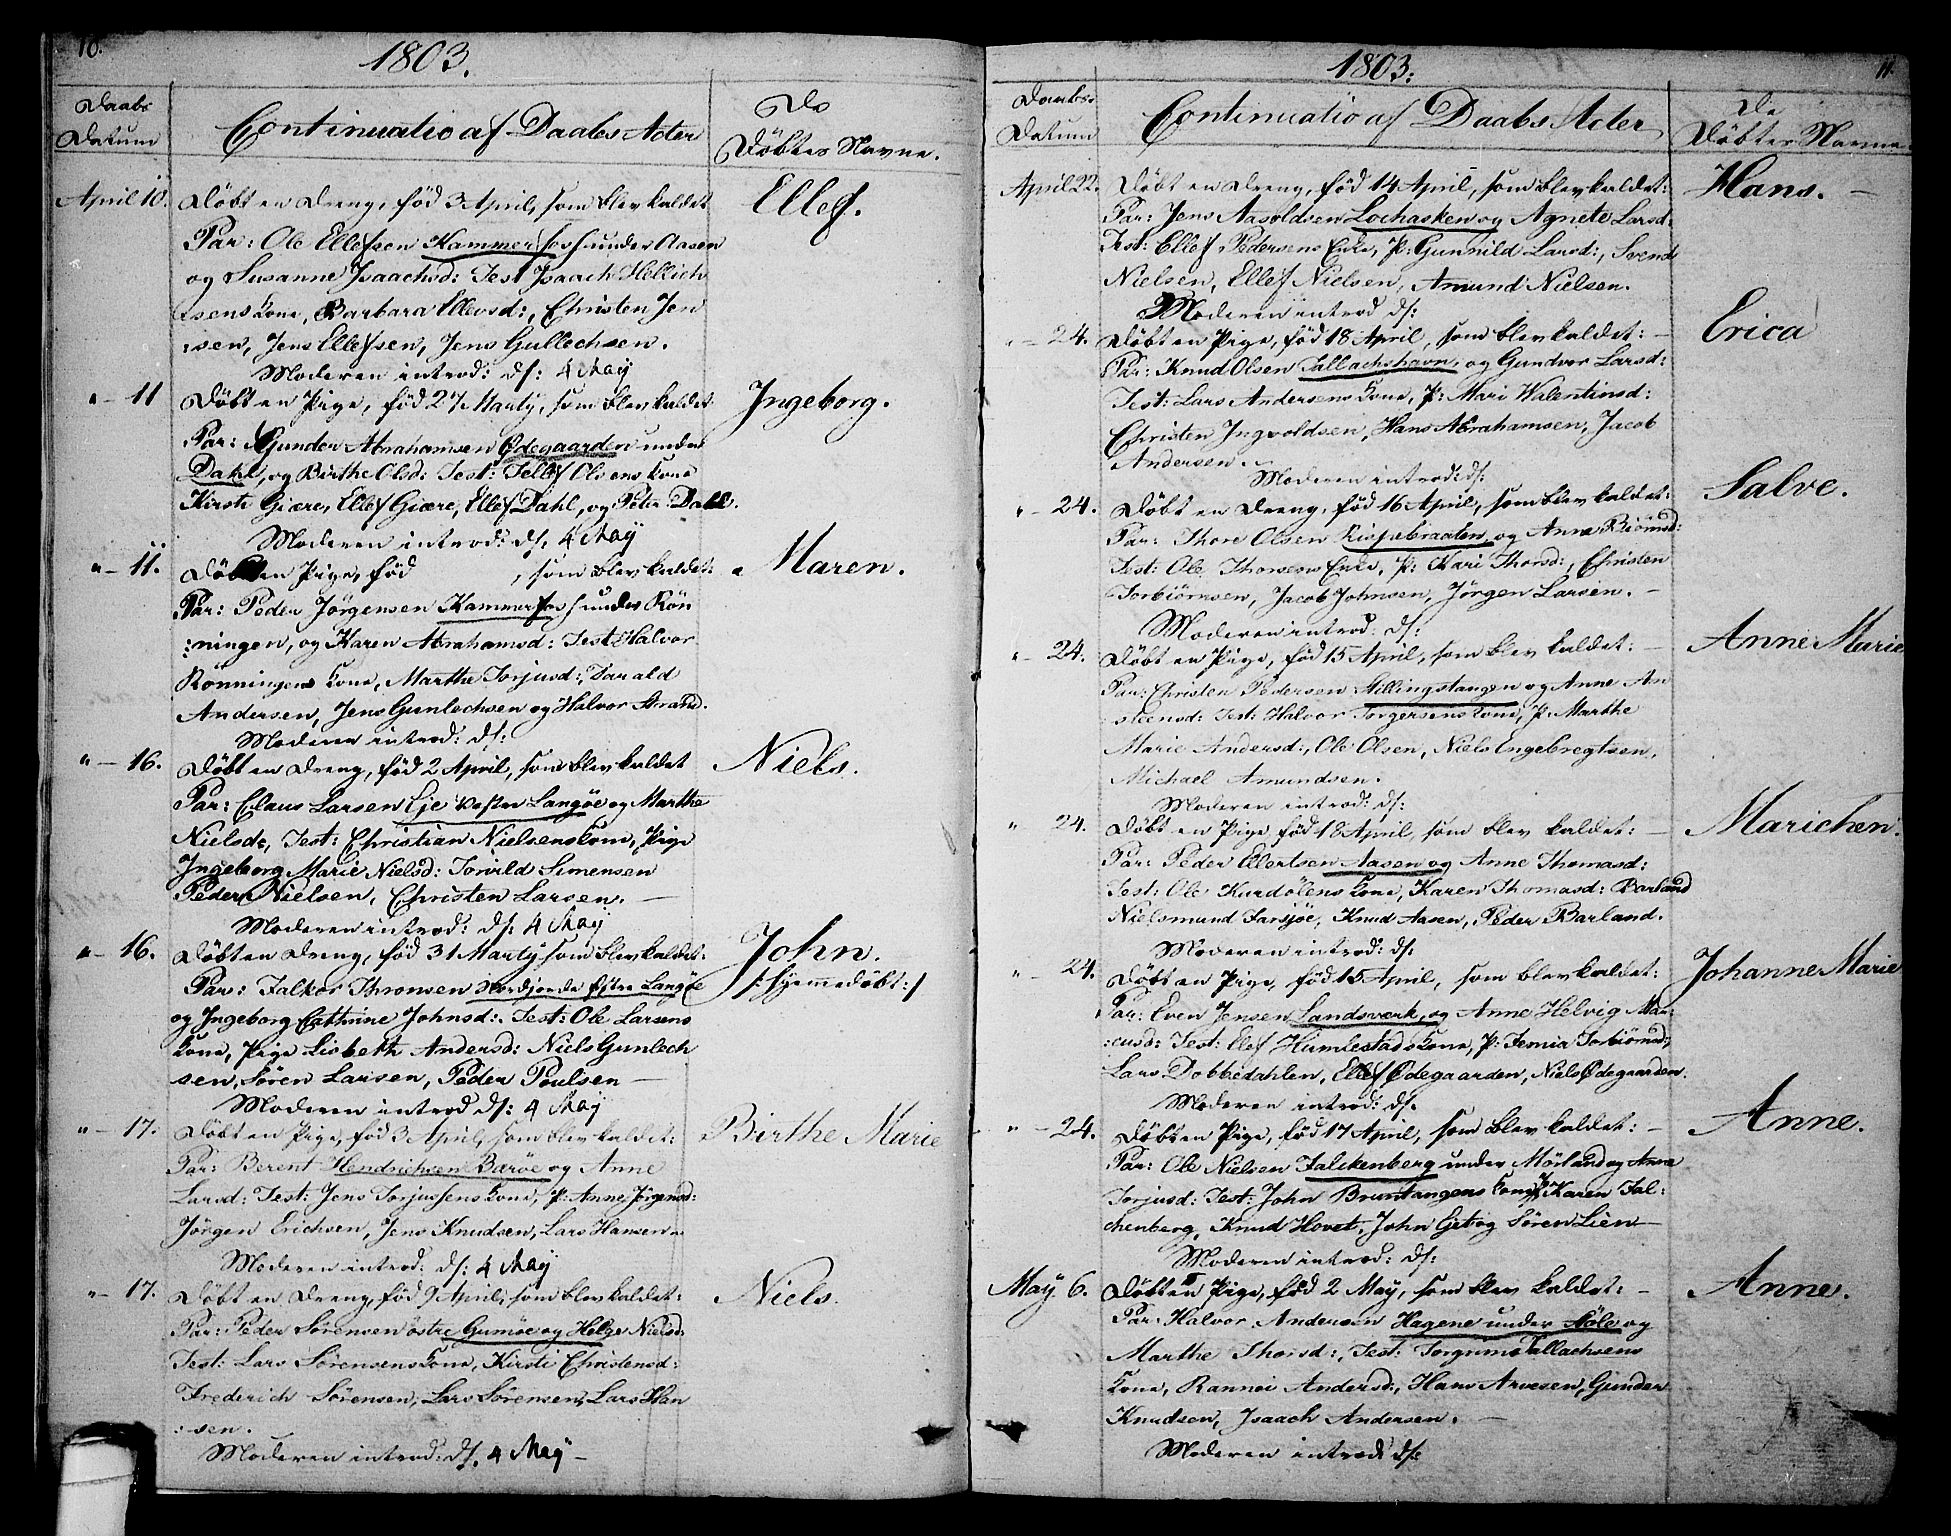 10.
1803.
Daabs Datum
Continuatio af Daabs Acter
De Döbtes Navne.
April 10.
Döbt en Dreng, föd 3 April, som blev kaldet
Ellef.
Par: Ole Ellefsen Kammerfoss under Aasen
og Susanne Isaachsd: Test Isaach Hellich
sens Kone, Barbara Ellevsd:, Christen Jen
:sen, Jens Ellefsen, Jens Gullechsen.
Moderen introd: d/: 4 May
" - 11
Döbt en Pige, föd 27 Marty, som blev kaldet
Ingeborg.
Par: Gunder Abrahamsen Ödegaarden under
Dahl, og Birthe Olsd: Test: Tellef Olsens Kone
Kirsti Giære, Ellef Giære, Ellef Dahl, og Peter Dahl.
Moderen introd: d/: 4 May
" - 11.
Döbt en Pige, föd , som blev kaldet:
Maren.
Par: Peder Jörgensen Kammerfoss under Rön
:ningen, og Karen Abrahamsd: Test Halvor
Rönningens Kone, Marthe Torjusd:, Darald
Andersen, Jens Gunlechsen og Halvor Strand.
Moderen introd: d/:
" - 16.
Döbt en Dreng, föd 2 April, som blev kaldet
Niels.
Par: Claus Larsen Eje Vesten Langöe og Marthe
Nielsd:, Test: Christian Nielsens Kone, Pige
Ingeborg Marie Nielsd: Torild Simensen
Peder Nielsen, Christen Larsen. —
Moderen introd: d/: 4 May
" - 16.
Döbt en Dreng, föd 31 Marty som blev kaldet:
John.
/: hjemmedöbt :/
Par: Falkor Thronsen Nordjorde Öjtre Langöe
og Ingeborg Cathrine Johnsd:. Test: Ole Larsens
Kone, Pige Lisbeth Andersd: Niels Gunlech
sen, Sören Larsen, Peder Poulsen —
Moderen introd d/: 4 May
" - 17.
Döbt en Pige, föd 3 April, som blev kaldet:
Birthe Marie
Par: Berent Hendrichsen Baröe og Anne
Larsd: Test: Jens Torjussens Kone, P: Anne Jörgensd:
Jörgen Erichsen, Jens Knudsen, Lars Hansen
Moderen introd: d/: 4 May
" - 17.
Döbt en Dreng, föd 9 April, som blev kaldet:
Niels.
Par: Peder Sörensen östre Gumöe og Helge Nielsd:
Test: Lars Sörensens Kone, Kirsti Christensd:
Frederich Sörensen, Lars Sörensen, Lars Han
:sen.
Moderen introd: d/: 4 May —
1803.
11.
Daabs Datum
Continuatio af Daabs Acter
De Döbtes Navne
April 22.
Döbt en Dreng, föd 14 April, som blev kaldet:
Hans. —
Par: Jens Aasoldsen Lochasken og Agnete Larsd:
Test: Ellef Pedersens Enke, P: Gunnild Larsd:, Svend
Nielsen, Ellef Nielsen, Amund Nielsen.
Moderen introd d/:
" - 24.
Döbt en Pige, föd 18 April, som blev kaldet: —
Erica
Par: Knud Olsen Tallachshavn, og Gundvor Larsd:
Test: Lars Andersens Kone, P: Mari Walentinsd:
Christen Ingvoldsen, Hans Abrahamsen, Jacob
Andersen.
Moderen introd: d/:
" - 24.
Döbt en Dreng, föd 16 April, som blev kaldet:
Salve.
Par: Thore Olsen Risjebraaten, og Anne Biörnsd:
Test: Ole Thorsens Enke, P: Kari Thorsd:, Christen
Torbiörnsen, Jacob Johnsen, Jörgen Larsen. —
Moderen introd: d/:
" - 24.
Döbt en Pige, föd 15 April, som blev kaldet: —
Anne Marie
Par: Christen Pedersen Stillingstangen og Anne An
:steensd: Test: Halvor Torgersens Kone, P: Marthe
Marie Andersd:, Ole Olsen, Niels Engebregtsen,
Michael Amundsen.
Moderen introd: d/:
" 24.
Döbt en Pige, föd 18 April, som blev kaldet: —
Marichen.
Par: Peder Ellertsen Aasen og Anne Thomasd:
Test: Ole Kurdölens Kone, Karen Thomasd: Barland
Nielsmund Farsjöe, Knud Aasen, Peder Barland.
Moderen introd: d/:
" - 24.
Döbt en Pige, föd 15 April, som blev kaldet:
Johanne Marie
Par: Even Jensen Landsværk, og Anne Helvig Mar:
:cusd: Test: Elef Humlestads Kone, P: Femia Torbiörnsd:
Lars Dobbedahlen, Ellef Ödegaarden, Niels Ödegaarden.
Moderen introd: d/:
" - 24.
Döbt en Pige, föd 17 April, som blev kaldet: —
Anne.
Par: Ole Nielsen Falckenberg under Mörland og Anne
Torjusd: Test: John Bruntangens Kone, P: Karen Fal:
chenberg, Knud Hovet, John Gjet og Sören Lien —
Moderen introd: d/:
May 6.
Döbt en Pige, föd 2 May, som blev kaldet: —
Anne.
Par: Halvor Andersen Hagene under Höle og
Marthe Thorsd:, Test: Torgrims Tallachsens
Kone, Rannei Andersd:, Hans Arvesen, Gunder
Knudsen, Isaach Andersen. —
Moderen introd: d/: